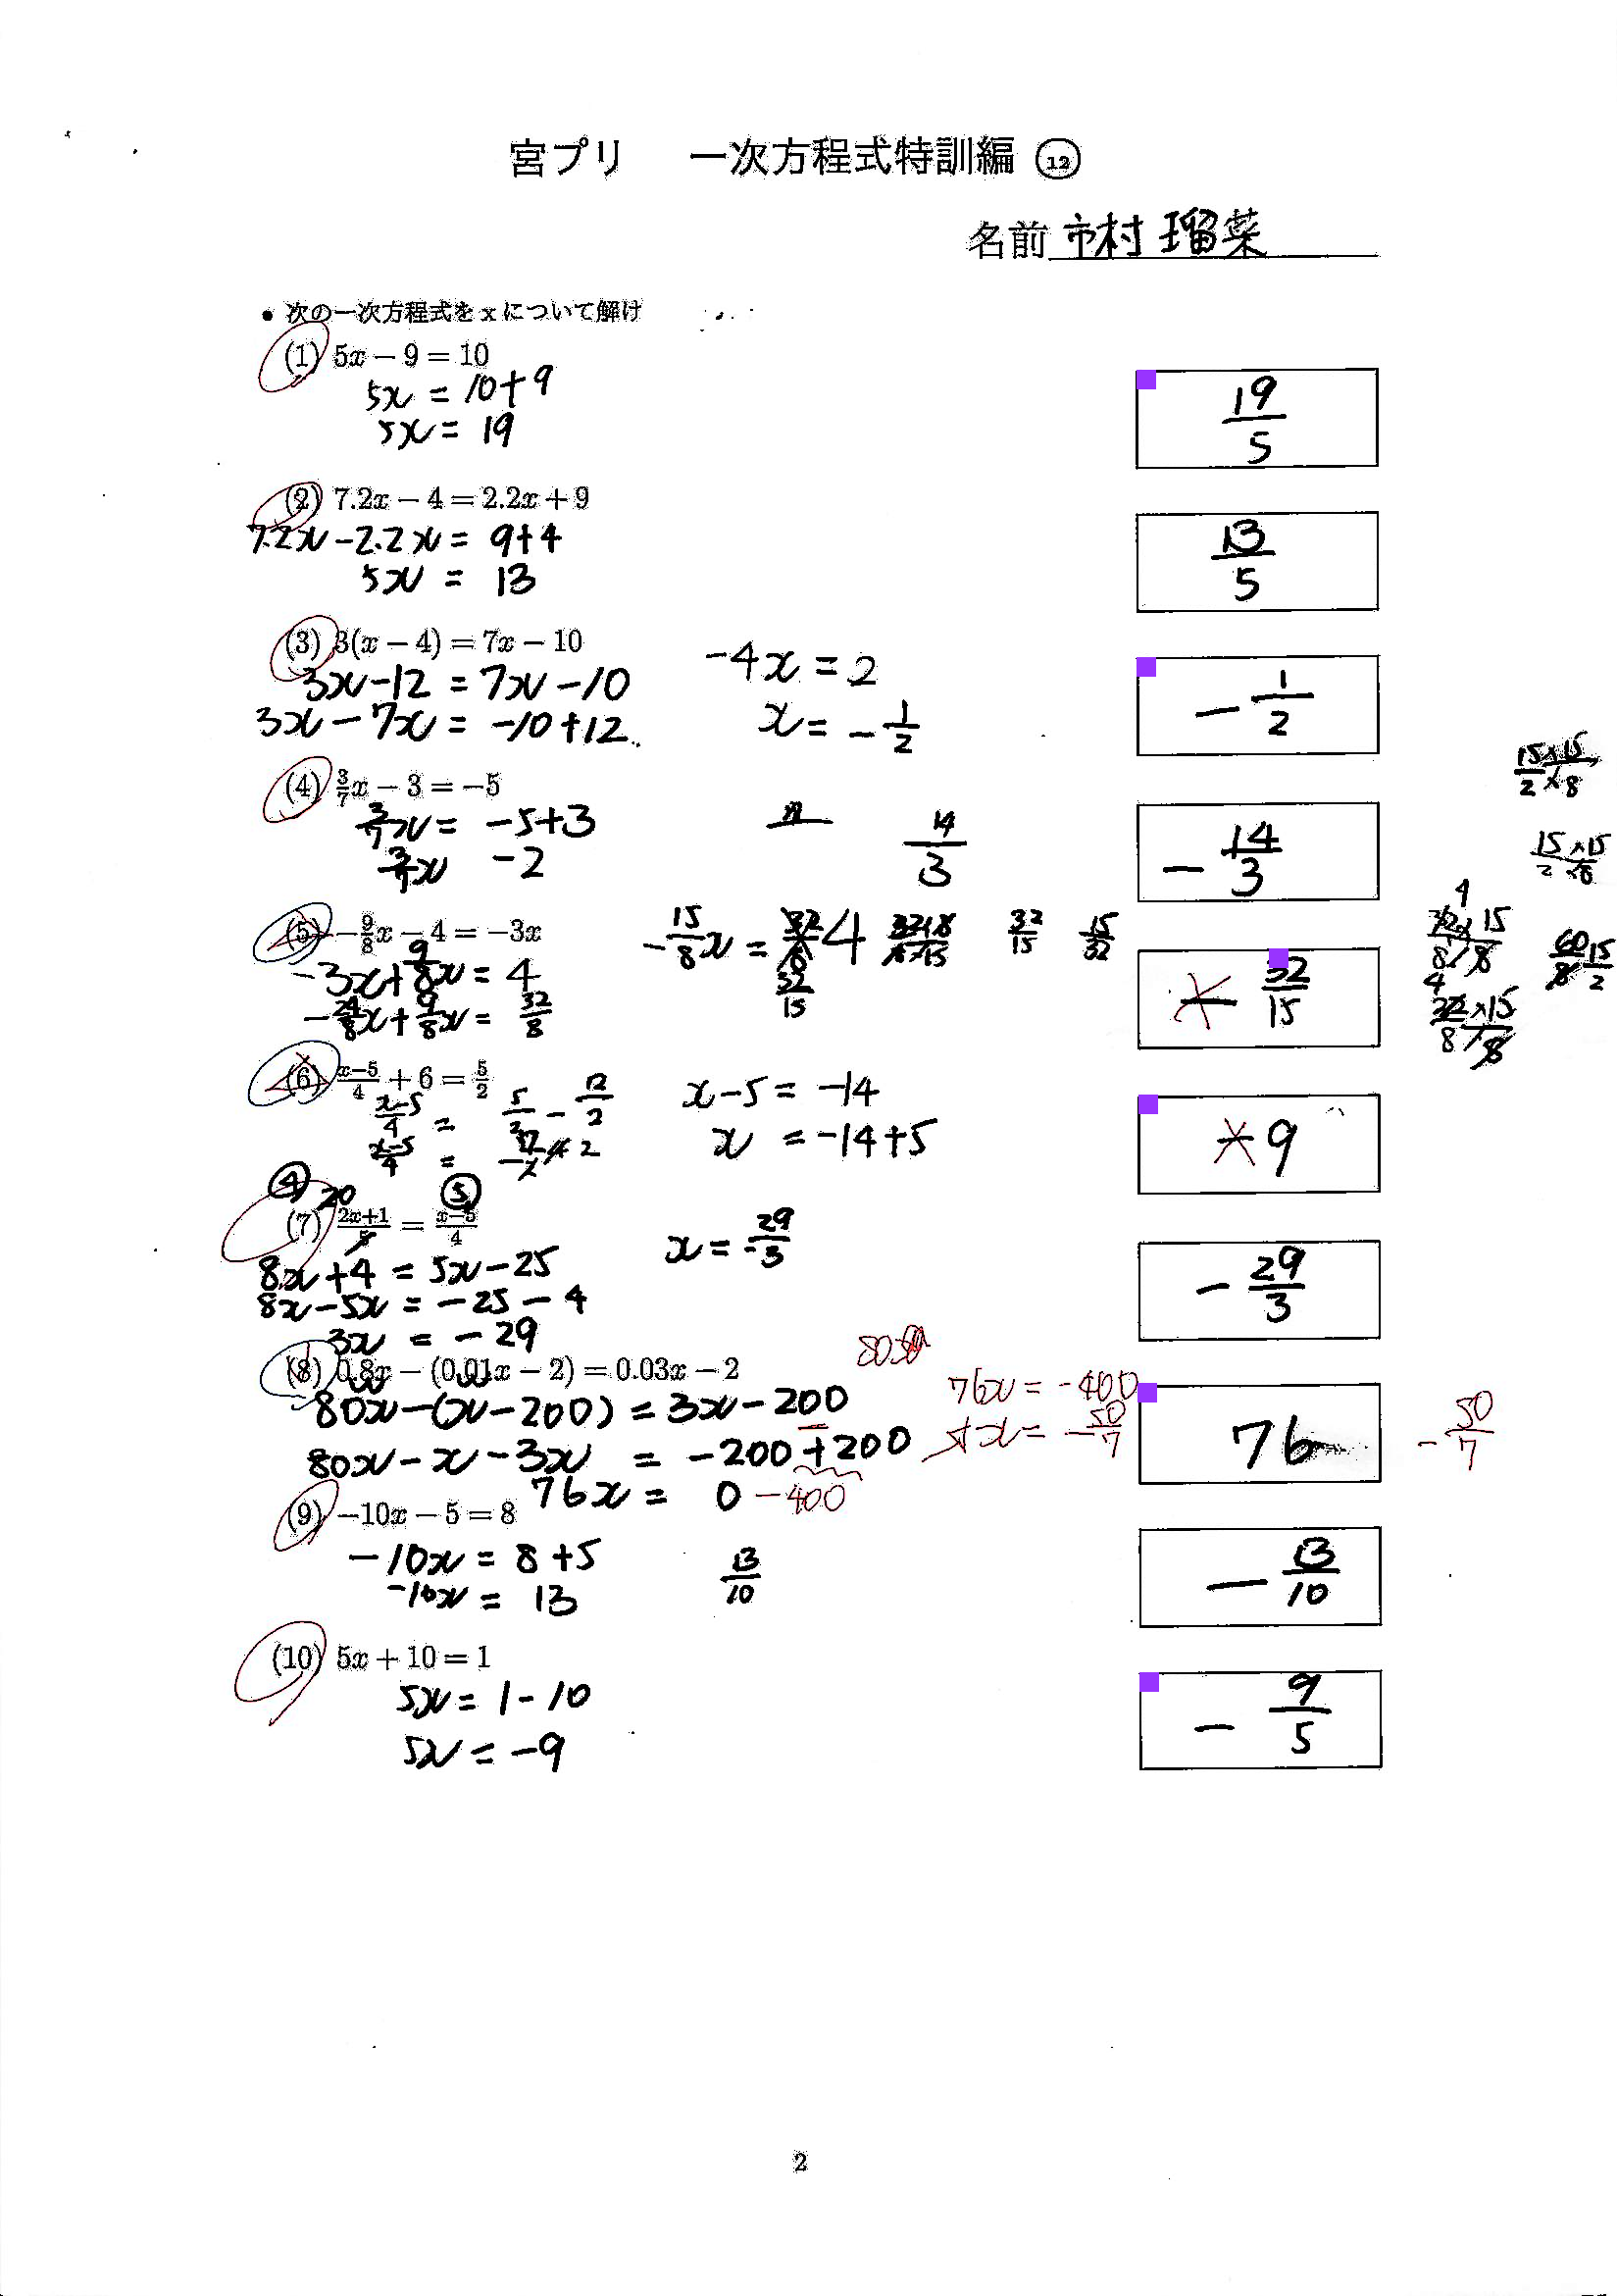 宮プリ 一次方程式特訓編 ⑫
名前 市村 瑠菜
• 次の一次方程式を x について解け
(1) 5x − 9 = 10
5x = 10+9
5x = 19
19/5
(2) 7.2x − 4 = 2.2x + 9
7.2x − 2.2x = 9+4
5x = 13
13/5
(3) 3(x − 4) = 7x − 10
3x − 12 = 7x − 10
3x − 7x = −10 + 12
−4x = 2
x = −1/2
−1/2
(4) 3/7x − 3 = −5
3/7x = −5+3
3/7x −2
14/3
−14/3
(5) −9/8x − 4 = −3x
−3x + 9/8x = 4
−24/8x + 9/8x = 32/8
−15/8x = 4
32/15
32/15
15/32
32/15
(6) x−5/4 + 6 = 5/2
x−5/4 = 5/2 − 12/2
x−5/4 =
x − 5 = −14
x = −14+5
9
④ 20 ⑤
(7) 2x+1/5 = x−5/4
8x + 4 = 5x − 25
8x − 5x = −25 − 4
3x = −29
x = −29/3
−29/3
(8) 0.8x − (0.01x − 2) = 0.03x − 2
80x − (x − 200) = 3x − 200
80x − x − 3x = −200 + 200
76x = 0 −400
76x = −400
x = −50/7
76
−50/7
(9) −10x − 5 = 8
−10x = 8 + 5
−10x = 13
13/10
−13/10
(10) 5x + 10 = 1
5x = 1 − 10
5x = −9
−9/5
2